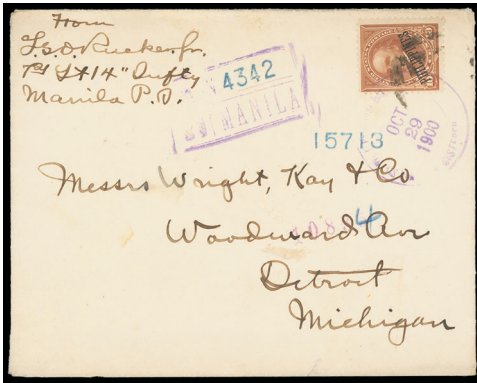 From
L. S. D. Rucker Jr.
1st Lt 14" Infty
Manila P. I.
4342
MANILA
15713
OCT
29
1900
Messrs Wright, Kay & Co
Woodward Ave
4
Detroit
Michigan